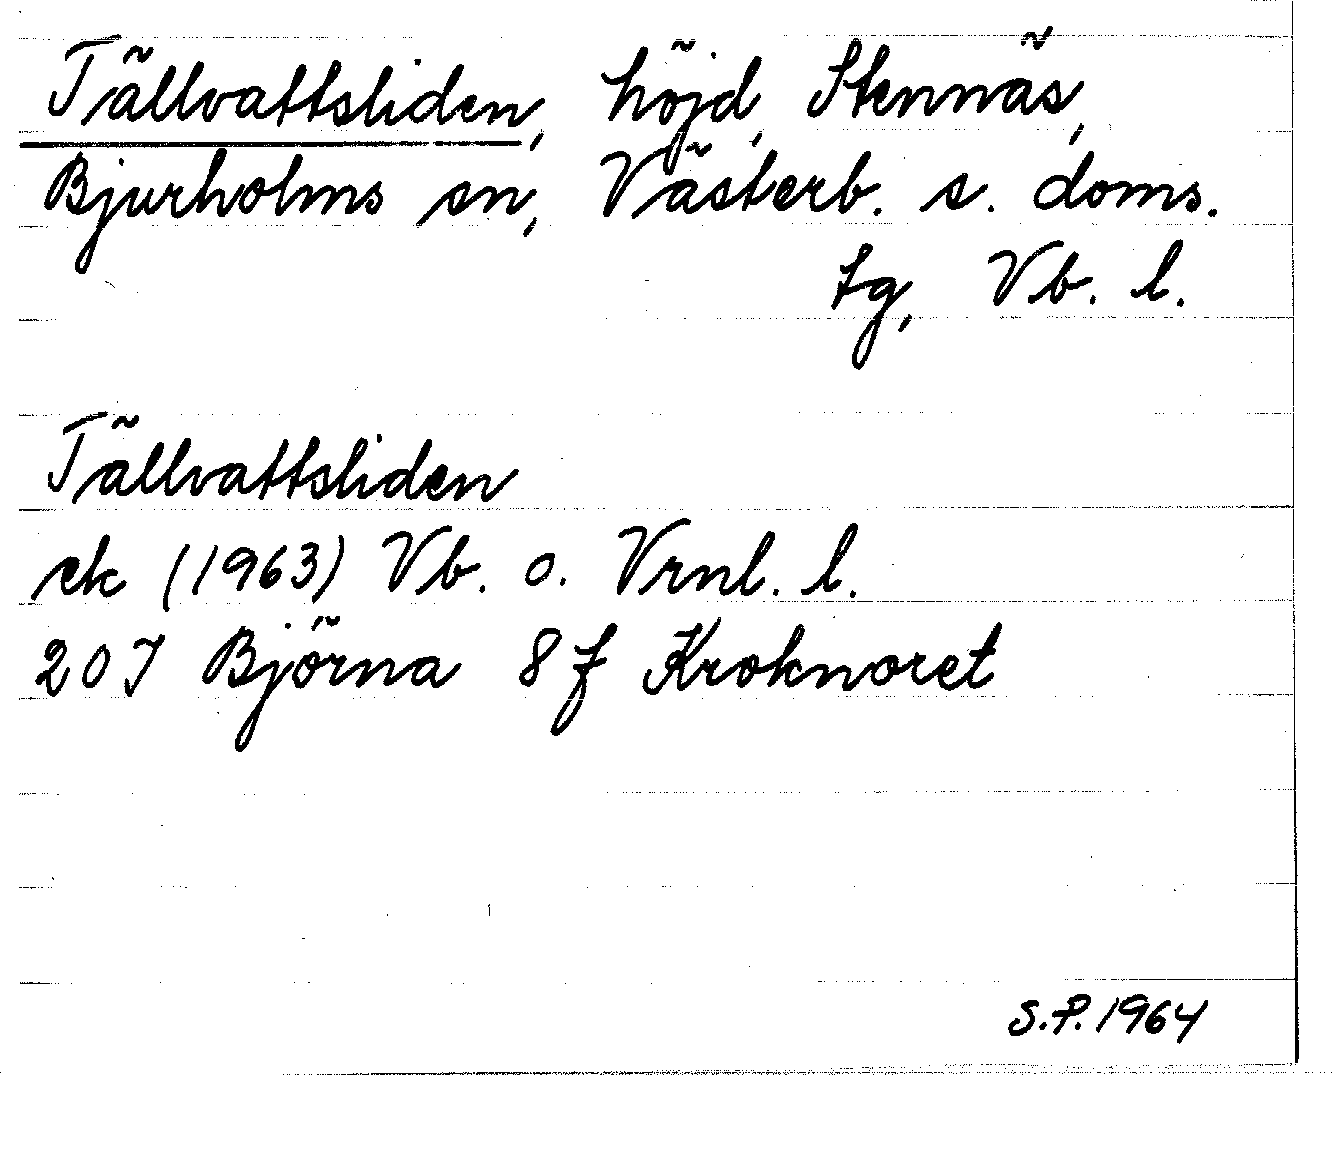 Tällvattsliden, höjd, Stennäs,
Bjurholms sn, Västerb. s. doms.
tg, Vb. l.
Tällvattsliden
ek (1963) Vb. o. Vrnl. l.
20J Björna 8f Kroknoret
S.P. 1964